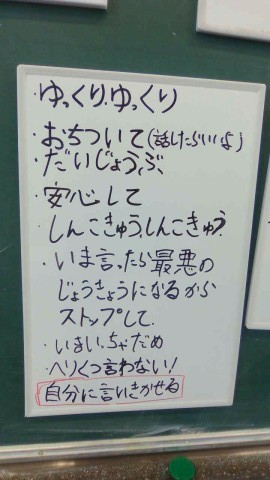 ・ゆっくり、ゆっくり
・おちついて(話したらいいよ)
・だいじょうぶ、
・安心して
しんこきゅう、しんこきゅう。
・いま言ったら最悪の
じょうきょうになるから
ストップして、
・いまいっちゃだめ
・へりくつ言わない!
自分に言いきかせる